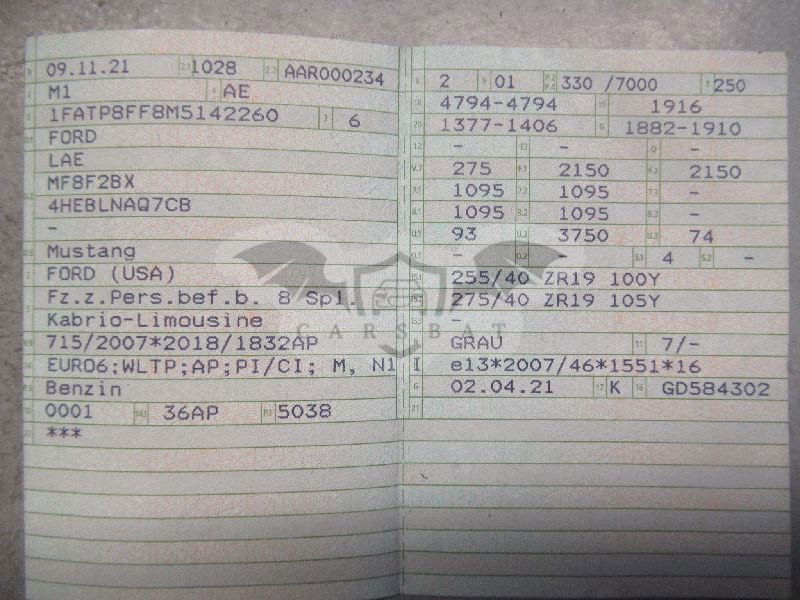 09.11.21 2.1 1028 2.2 AAR000234
M1 AE
1FATP8FF8M5142260 3 6
FORD
LAE
MF8F2BX
4HEBLNAQ7CB
-
Mustang
FORD (USA)
Fz.z.Pers.bef.b. 8 Spl.
Kabrio-Limousine
715/2007*2018/1832AP
EURO6;WLTP;AP;PI/CI; M, N1 I
Benzin
0001 14.1 36AP P.1 5038
***
L 2 9 01 P.2 P.4 330 /7000 T 250
18 4794-4794 19 1916
20 1377-1406 G 1882-1910
12 - 13 - Q -
V.7 275 F.1 2150 F.2 2150
7.1 1095 7.2 1095 7.3 -
8.1 1095 8.2 1095 8.3 -
U.1 93 U.2 3750 U.3 74
O.1 - O.2 - S.1 4 S.2 -
15.1 255/40 ZR19 100Y
15.2 275/40 ZR19 105Y
15.3 -
R GRAU 11 7/-
K e13*2007/46*1551*16
6 02.04.21 17 K 16 GD584302
21
CARSBAT